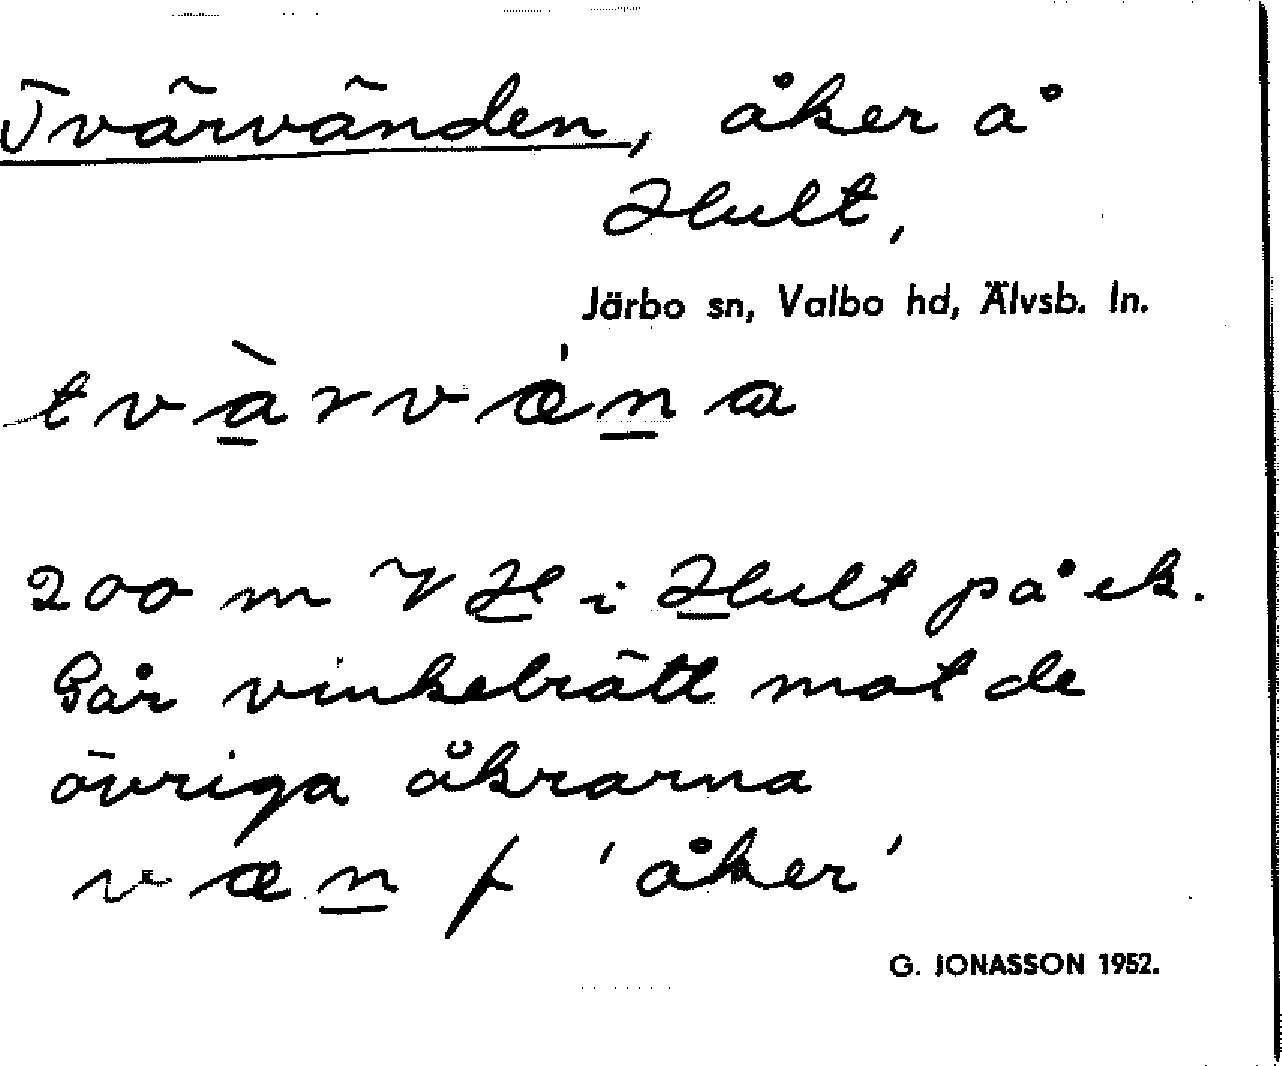 Tvärvänden, åker å
Hult,
Järbo sn, Valbo hd, Älvsb. ln.
tvàrvǽna
200 m V H i Hult på ek.
Går vinkelrätt mot de
övriga åkrarna
væn f 'åker'
G. JONASSON 1952.